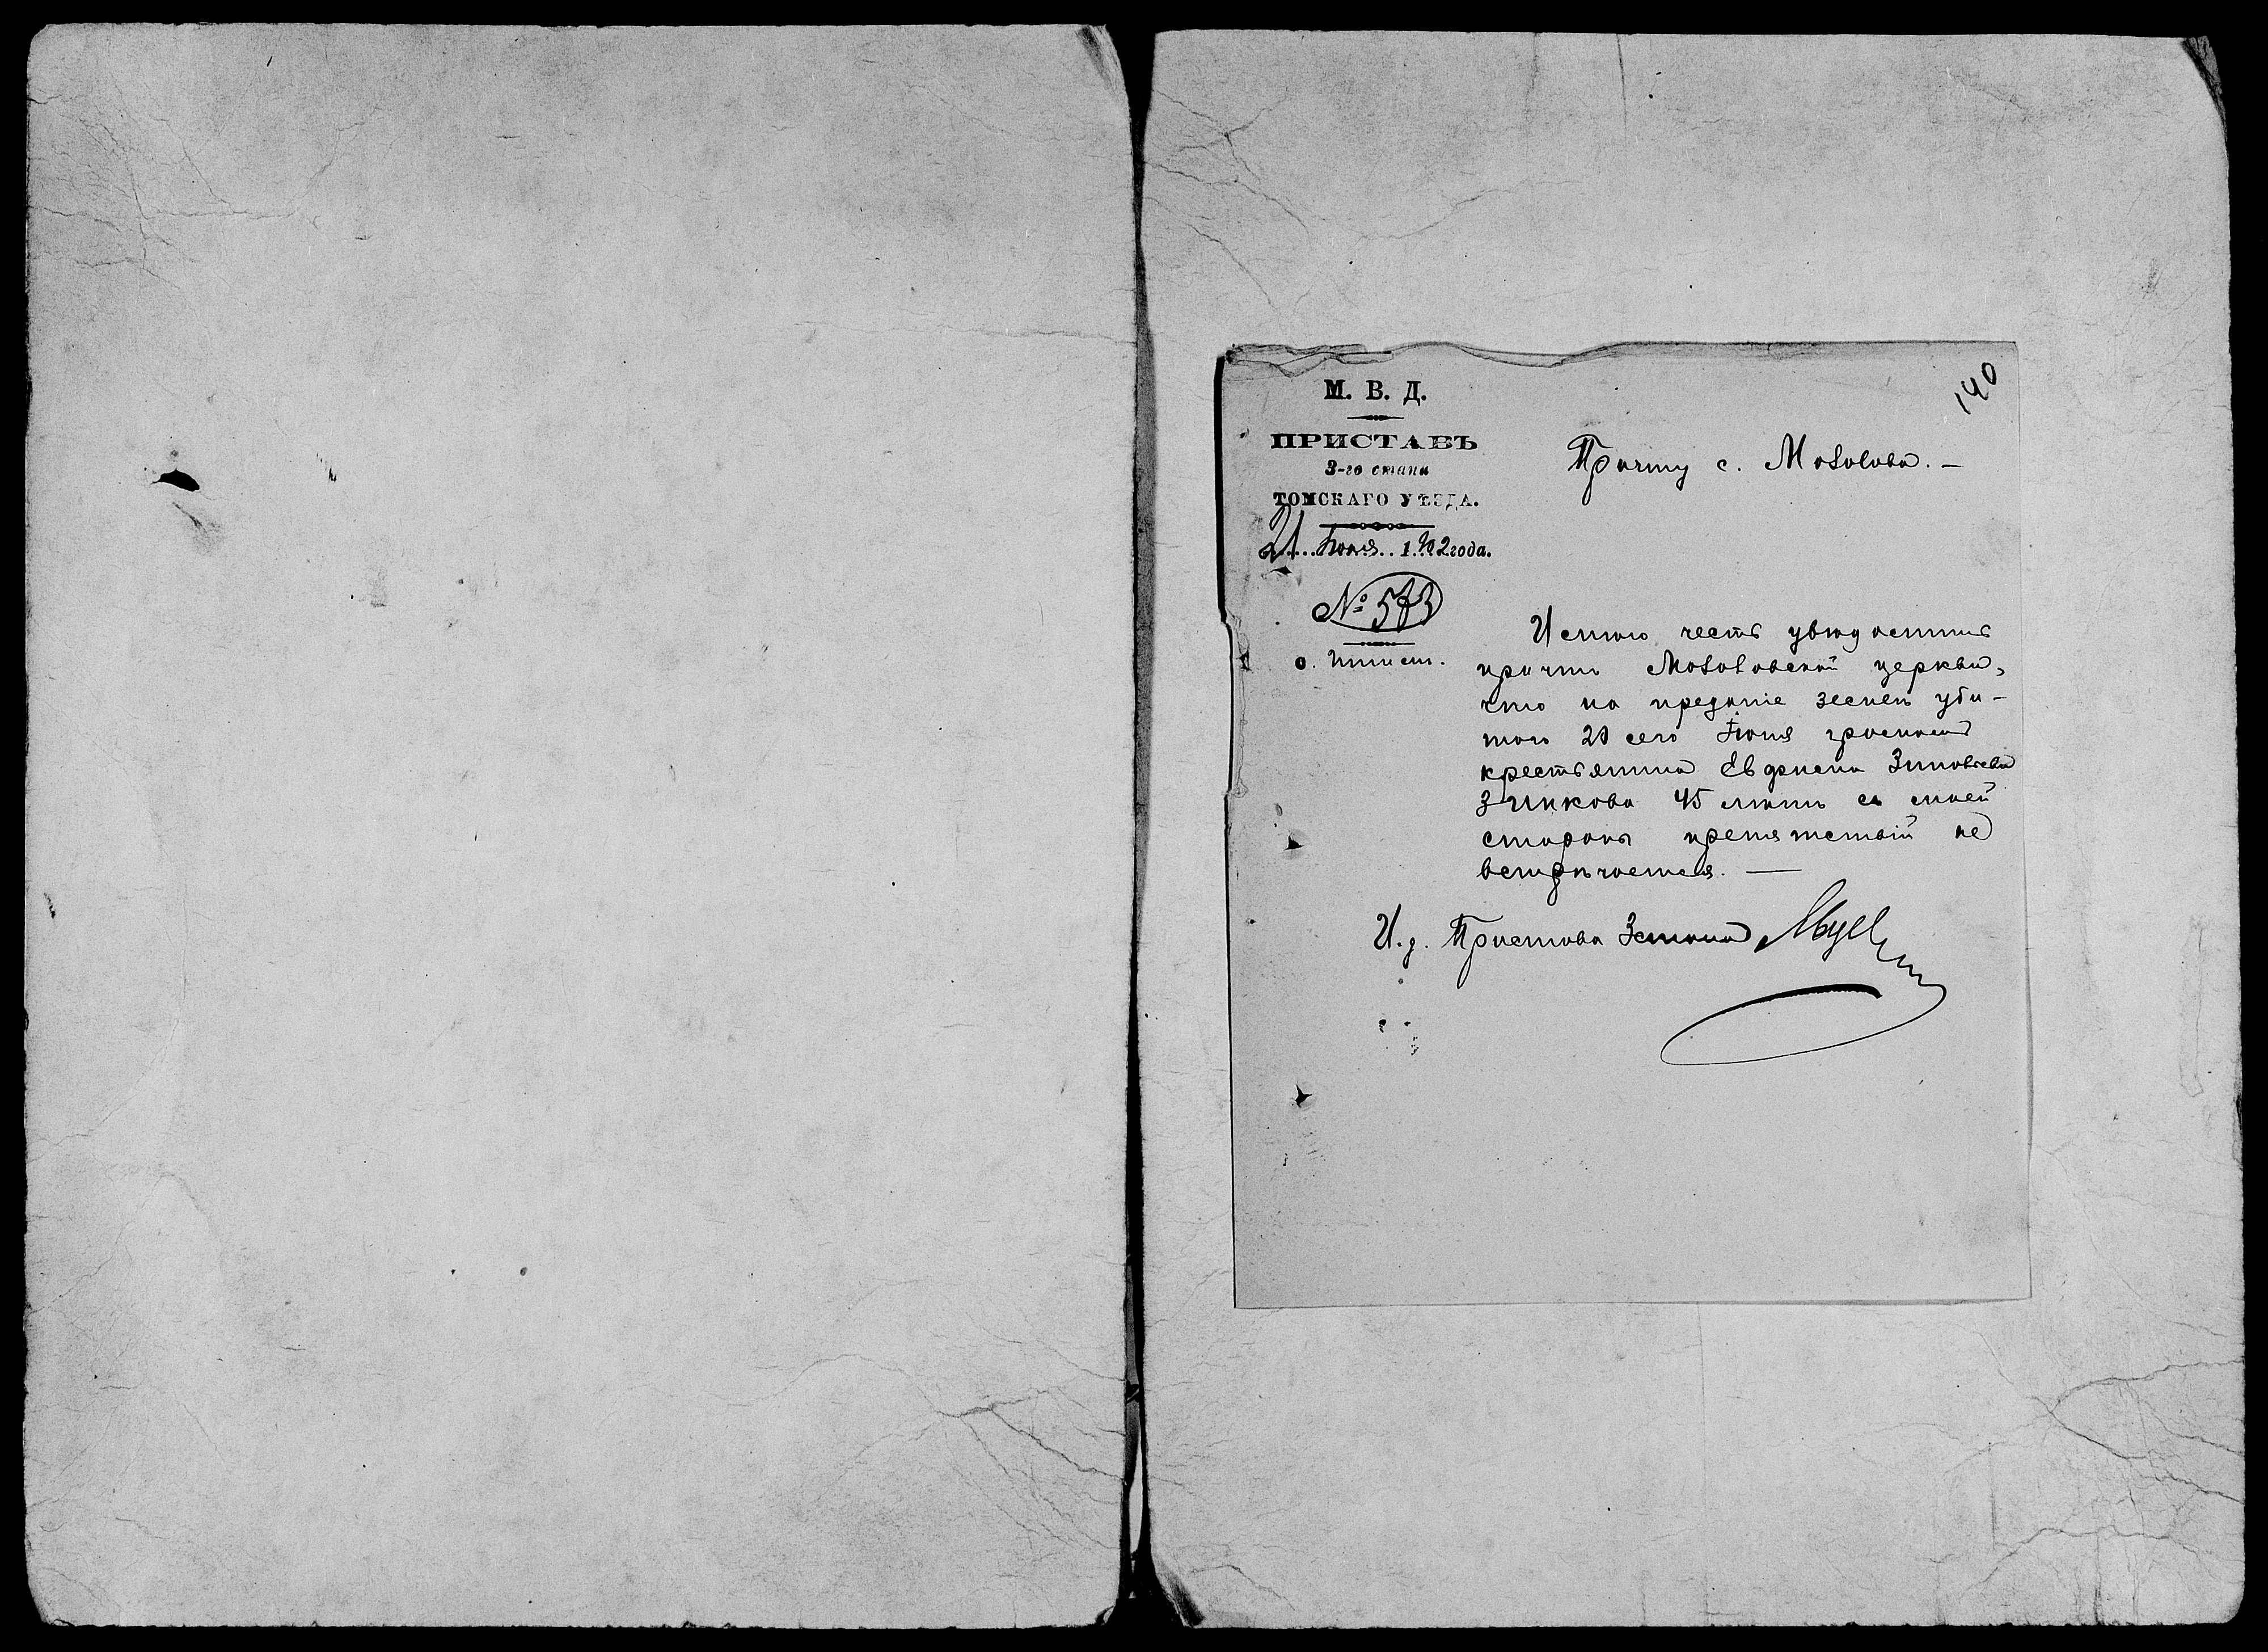 140
М. В. Д.
ПРИСТАВЪ
3-го стана
ТОМСКАГО УѢЗДА.
21 Іюля 1902 года.
№ 573
Причту с. Мозолова. —
Имѣю честь увѣдомить
причтъ Мозоловской церкви,
что на преданіе землѣ уби-
того 20 сего Іюля грозою
крестьянина Евдокима Зиновьева
Зинкова 45 лѣтъ съ моей
стороны препятствій не
встрѣчается. —
И. д. Пристава 3 стана